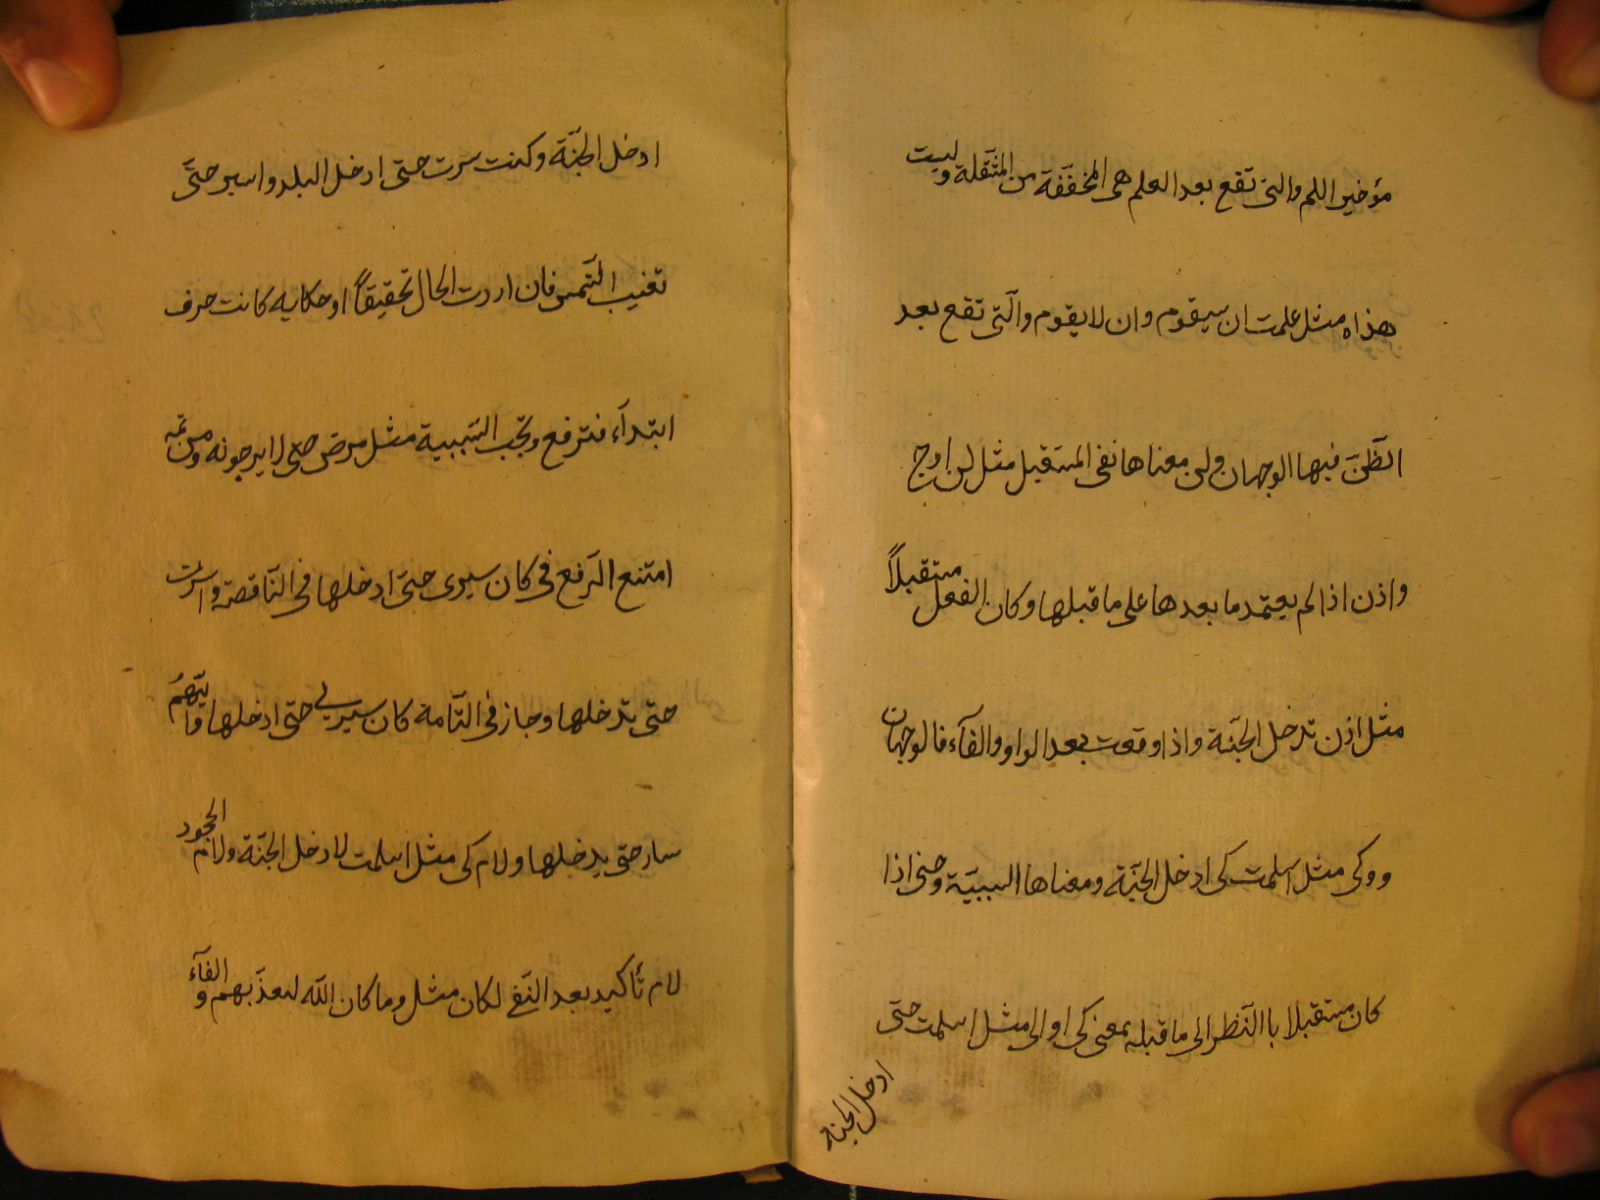 مؤخير اللم والتى تقع بعد العلم هى المخففة من المثقلة وليست
هذاه مثل علمت ان سيقوم وان لا يقوم والتى تقع بعد
الظن فيها الوجهان ولن معناها نفى المستقبل مثل لن ابرج
واذن اذا لم يعتمد ما بعدها على ما قبلها وكان الفعل مستقبلاً
مثل اذن تدخل الجنة واذا وقعت بعد الواو والفآء فالوجهان
و وكى مثل اسلمت كى ادخل الجنة ومعناها السببية وحتى اذا
كان مستقبلا باالنظر الى ما قبله بمعنى كى او الى مثل اسلمت حتى
ادخل الجنة
ادخل الجنة وكنت سرت حتى ادخل البلد واسير حتى
تغيب الشمس فان اردت الحال تحقيقاً او حكايه كانت حرف
ابتدآء فترفع وتجب السببية مثل مرض حتى لا يرجونه ومن ثمه
امتنع الرفع فى كان سيرى حتى ادخلها فى الناقصة واسرت
حتى تدخلها وجاز فى التامة كان سيرى حتى ادخلها وايهم
سار حتى يدخلها ولام كى مثل اسلمت لادخل الجنة ولام الجحود
لام تأكيد بعد النفى لكان مثل وما كان الله ليعذبهم والفآء